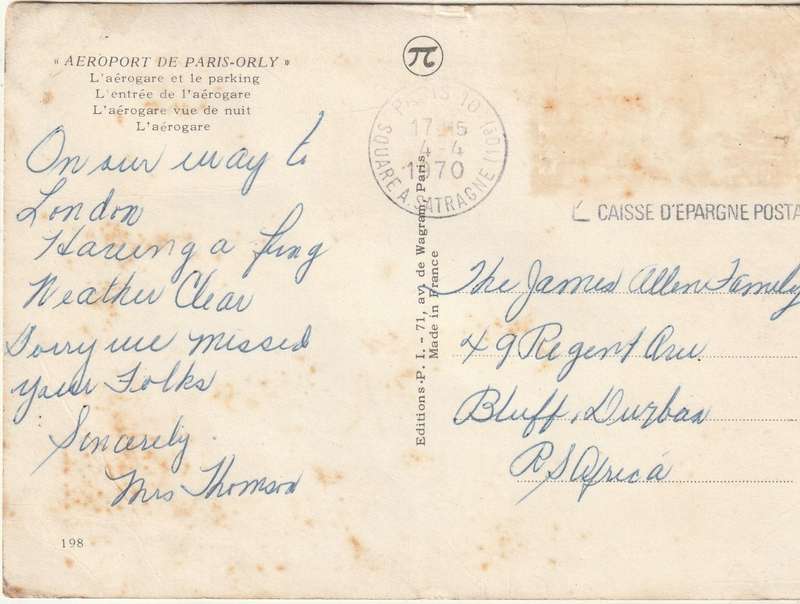 « AEROPORT DE PARIS-ORLY »
L'aérogare et le parking
L'entrée de l'aérogare
L'aérogare vue de nuit
L'aérogare
On our way to
London
Having a fing
Weather Clear
Sorry we missed
your Folks
Sincerely
Mrs Thomson
198
π
PARIS 10 (10E)
4-4
1970
SQUARE A. SATRAGNE
Editions P. I. - 71, av. de Wagram, Paris
Made in France
CAISSE D'EPARGNE POSTA
The James Allen Family
49 Regent Ave.
Bluff, Durban
R S Africa